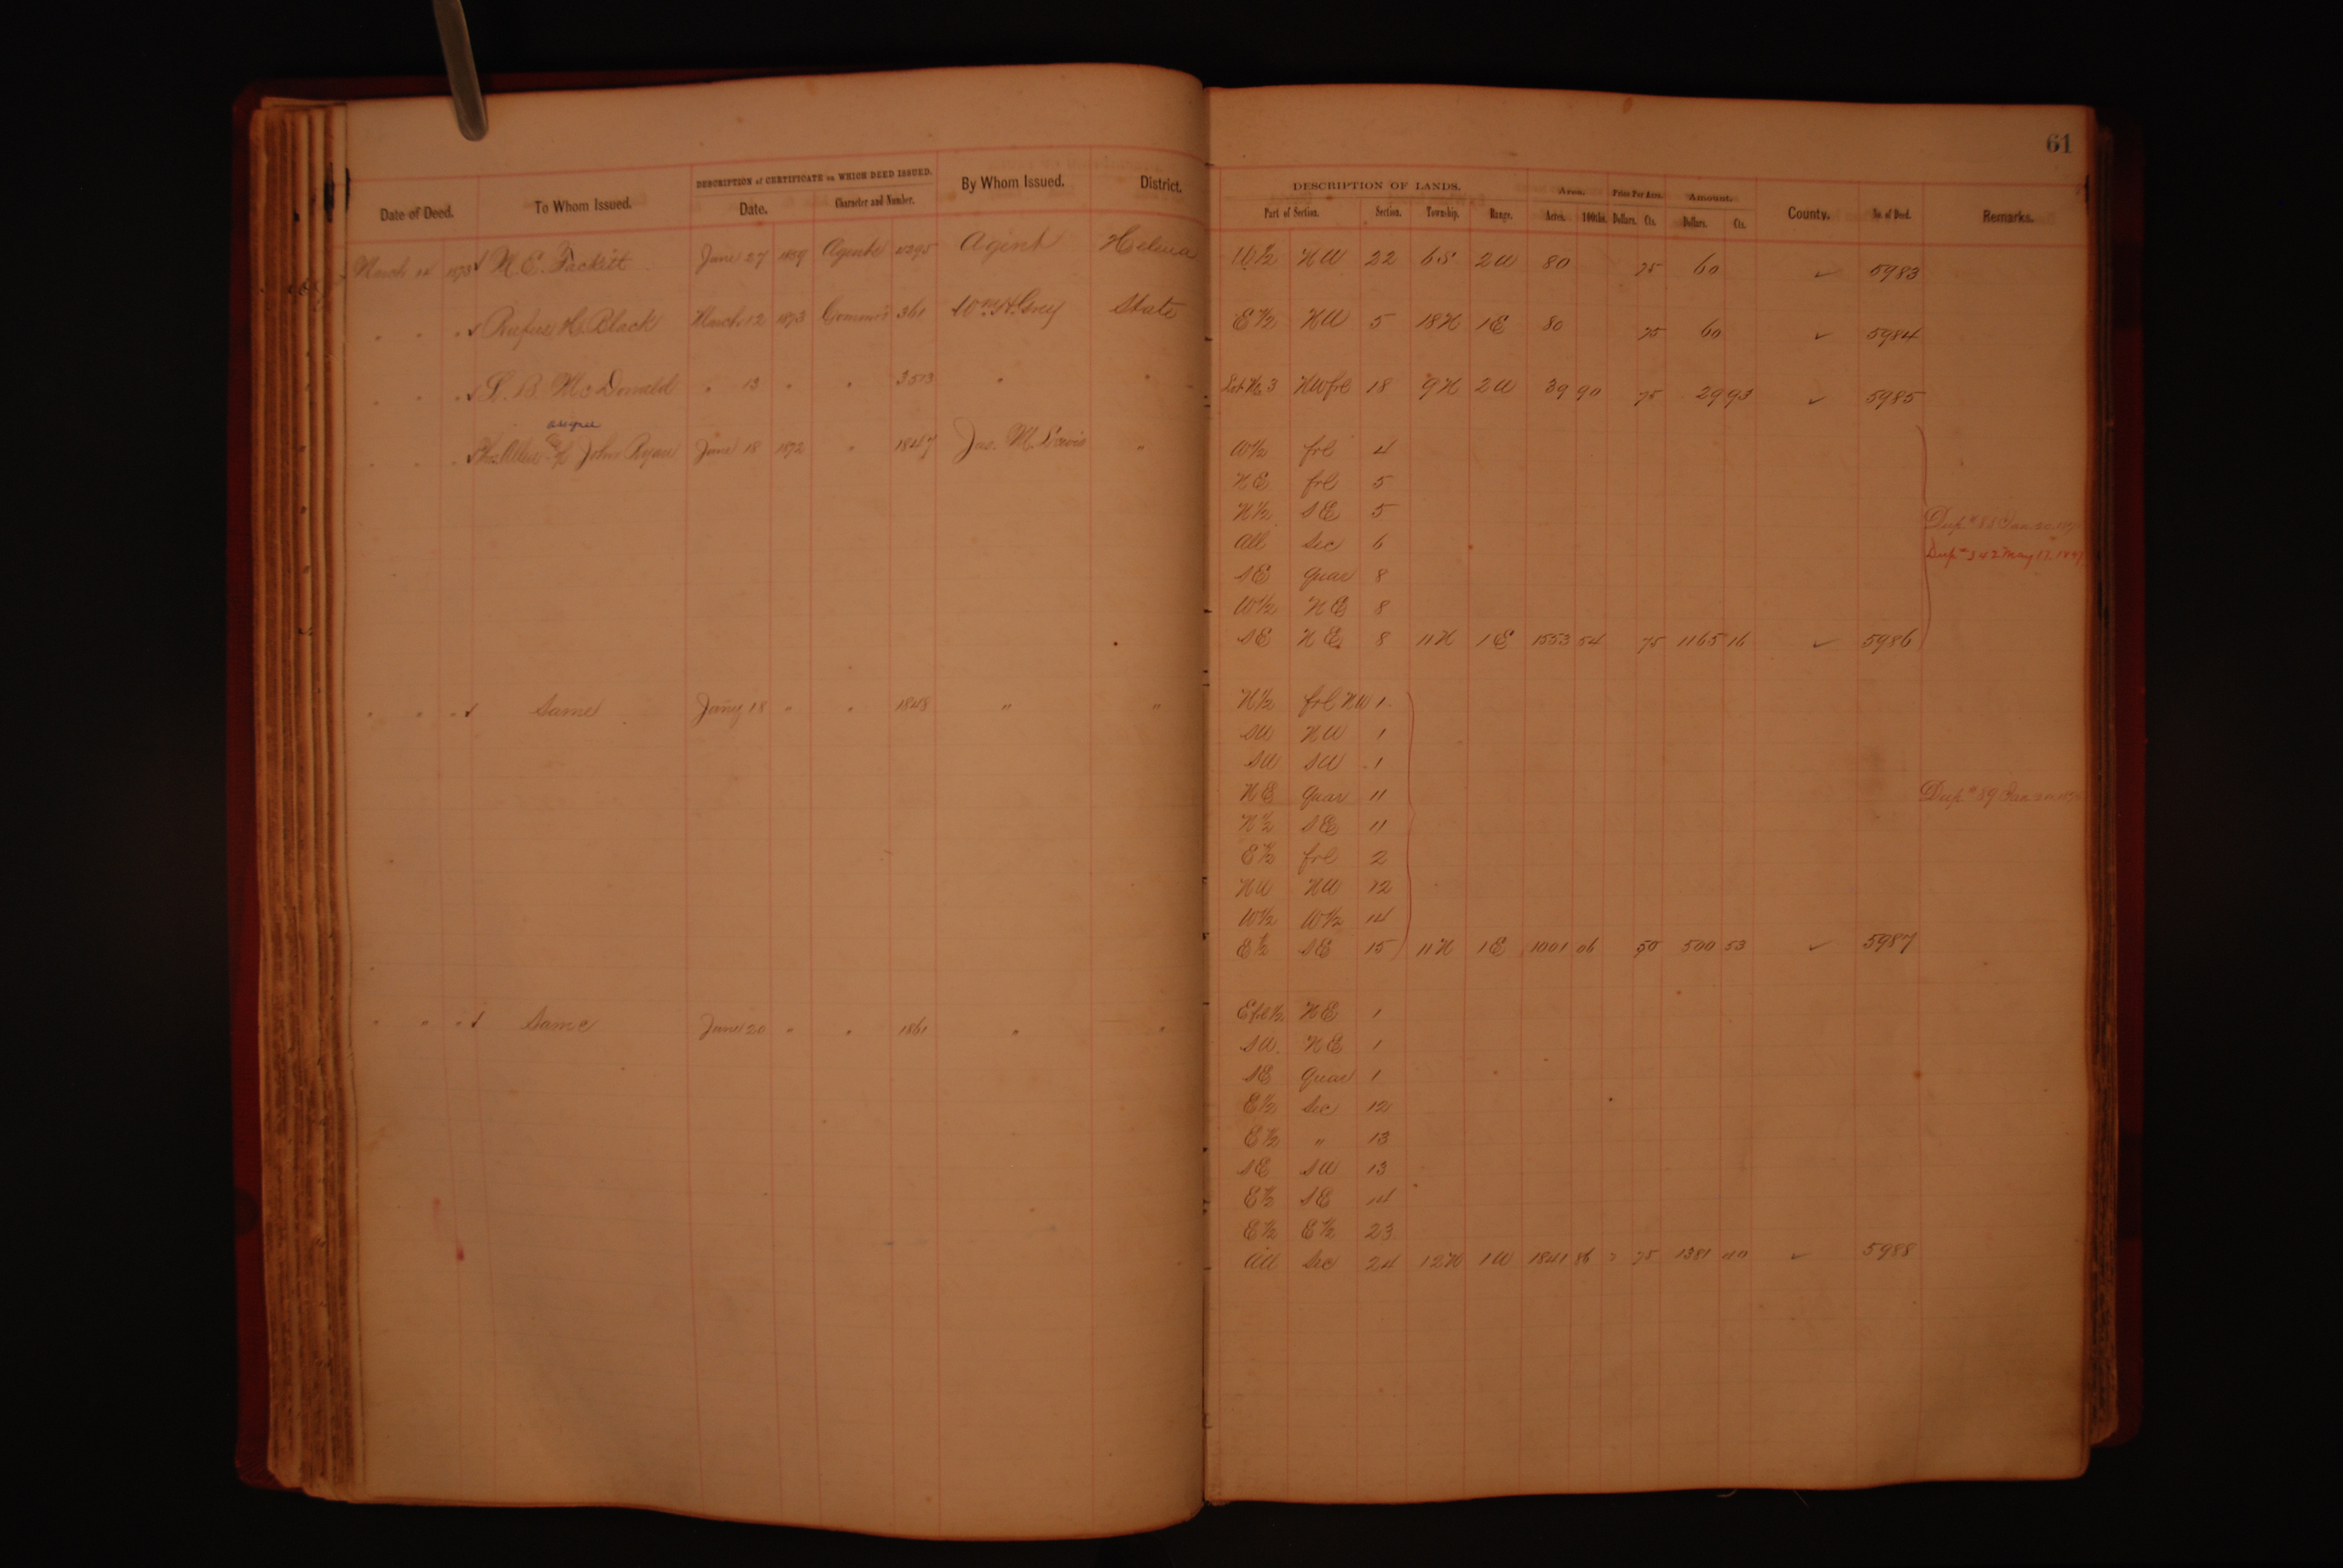 61
Date of Deed. To Whom Issued. DESCRIPTION of CERTIFICATE on WHICH DEED ISSUED. Date. Character and Number. By Whom Issued. District. DESCRIPTION OF LANDS. Part of Section. Section. Township. Range. Area. Acres. 100ths. Price Per Acre. Dollars. Cts. Amount. Dollars. Cts. County. No. of Deed. Remarks.
March 14 1873 M. E. Tackett June 27 1859 Agents Agent Helena W½ NW 22 6S 2W 80 75 60 ✓ 5983
" " " ✓ Rufus H. Black March 12 1873 Commrs 361 Wm. H. Grey State E½ NW 5 18N 1E 80 75 60 ✓ 5984
" " " ✓ L. B. McDonald " 13 " " " " Lot No 3 NW frl 18 9N 2W 39 90 75 29 93 ✓ 5985
asignee
" " " ✓ Thos. Allen of John Ryan June 18 1872 " 1847 Jas. M. Lewis " W½ frl 4
NE frl 5
N½ SE 5
Dup # 88 Jan 20
All Sec 6
Dup # 342 May 17. 1897
SE Quar 8
W½ NE 8
SE NE 8 11N 1E 1553 54 75 1165 16 ✓ 5986
" " " ✓ Same 18 " " 1848 " " N½ frl NW 1
SW NW 1
SW SW 1
NE Quar 11 Dup # 89 Jan 20
N½ SE 11
E½ frl 2
NW NW 12
W½ W½ 14
E½ SE 15 11N 1E 1001 06 50 500 53 ✓ 5987
" " " ✓ Same June 20 " " 1861 " " E frl ½ NE 1
SW NE 1
SE Quar 1
E½ Sec 12
E½ " 13
SE SW 13
E½ SE 14
E½ E½ 23
All Sec 24 12N 1W 1841 86 75 1381 40 ✓ 5988